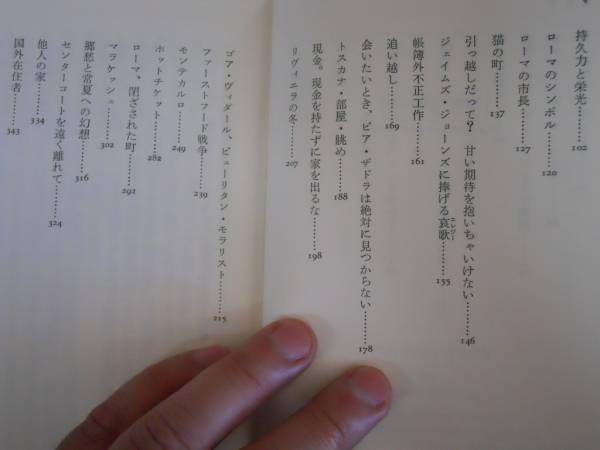 持久力と栄光………102
ローマのシンボル………120
ローマの市長………127
猫の町………137
引っ越しだって？ 甘い期待を抱いちゃいけない………146
ジェイムズ・ジョーンズに捧げる哀歌エレジー………155
帳簿外不正工作………161
追い越し………169
会いたいとき、ピア・ザドラは絶対に見つからない………178
トスカナ・部屋・眺め………188
現金。現金を持たずに家を出るな………198
リヴィエラの冬………207
ゴア・ヴィダール、ピューリタン・モラリスト………215
ファーストフード戦争………239
モンテカルロ………249
ホットチケット………282
ローマ、閉ざされた町………292
マラケッシュ………302
郷愁と常夏への幻想………316
センターコートを遠く離れて………324
他人の家………334
国外在住者………343